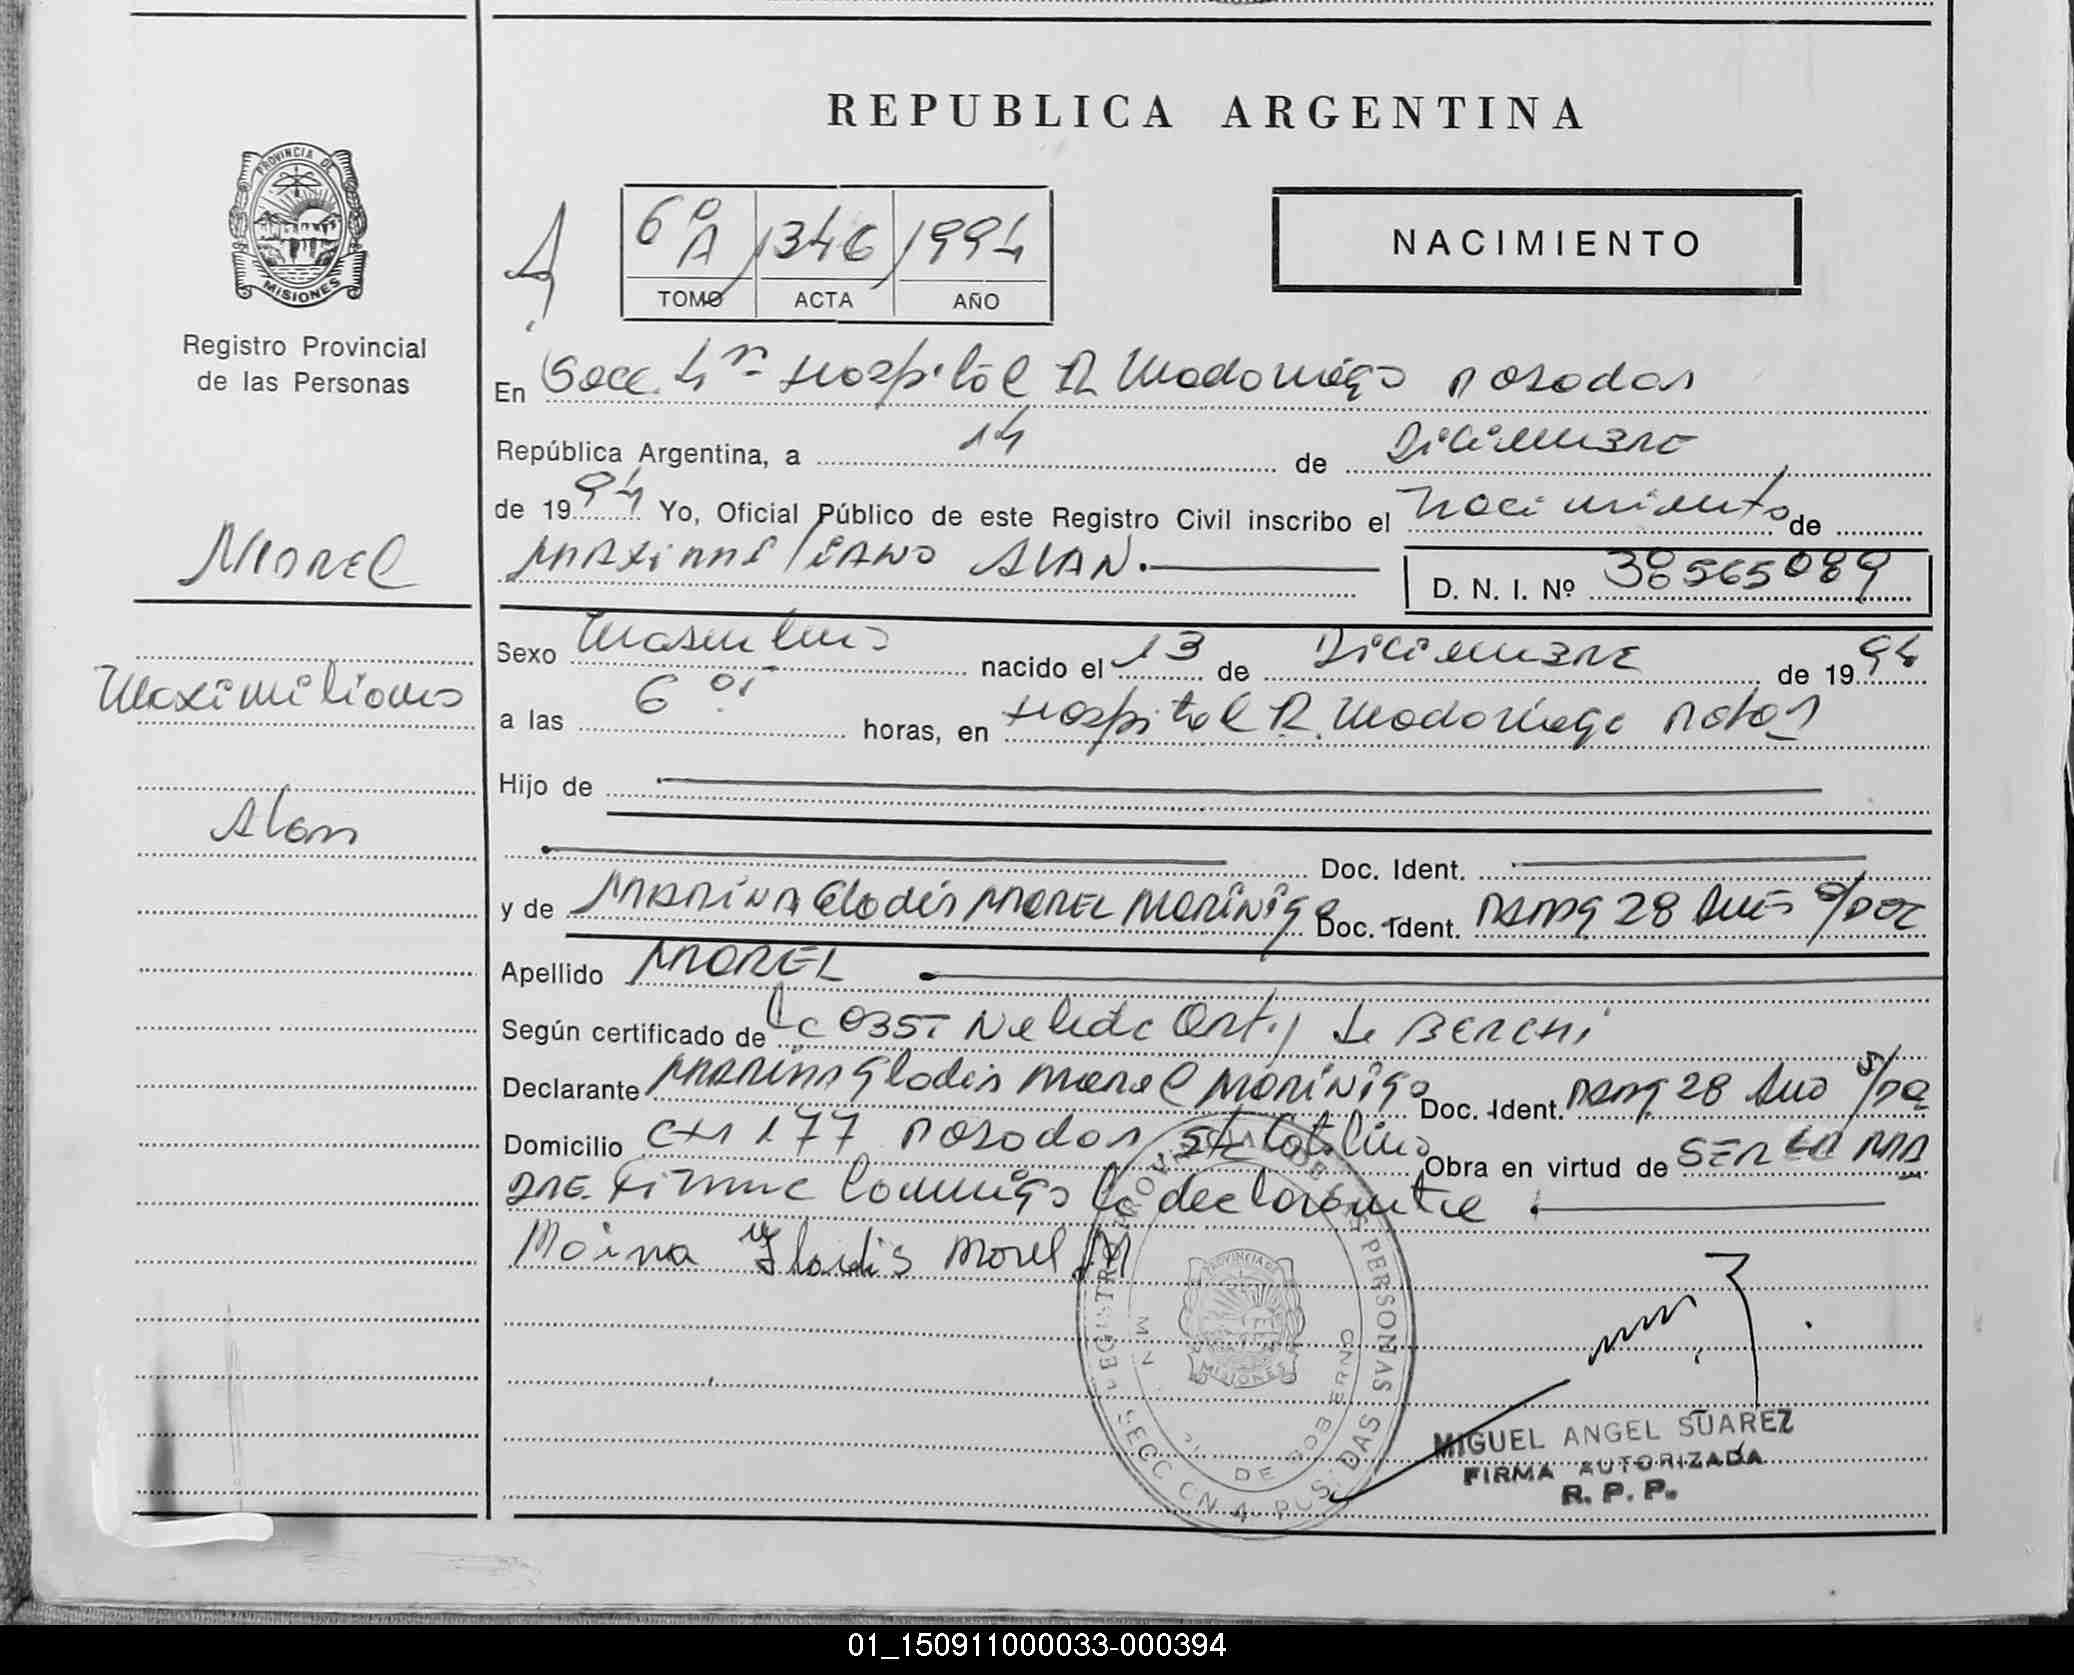 REPUBLICA ARGENTINA
PROVINCIA DE
MISIONES
Registro Provincial
de las Personas
6º A 346 1994
TOMO ACTA AÑO
NACIMIENTO
En Secc. 4ª Hospital R Madariaga Posadas
República Argentina, a 14 de Diciembre
de 1994 Yo, Oficial Público de este Registro Civil inscribo el Nacimiento de
MAXIMILIANO ALAN.
D. N. I. Nº 38565089
MOREL
Maximiliano
Alan
Sexo Masculino nacido el 13 de Diciembre de 1994
a las 6 horas, en Hospital R. Madariaga
Hijo de
Doc. Ident.
y de MARINA Gladis MOREL MORINIGO Doc. Ident. 28 s/doc
Apellido MOREL
Según certificado de
Declarante MARINA Gladis Morel MORINIGO Doc. Ident. 28
Domicilio CH 177 Posadas Obra en virtud de SER LA MA
DRE. Firma conmigo la declarante
Gladis Morel M
REGISTRO PROVINCIAL DE LAS PERSONAS
SECCION 4 POSADAS
M. DE GOBIERNO
PROVINCIA DE
MISIONES
MIGUEL ANGEL SUAREZ
FIRMA AUTORIZADA
R. P. P.
01_150911000033-000394